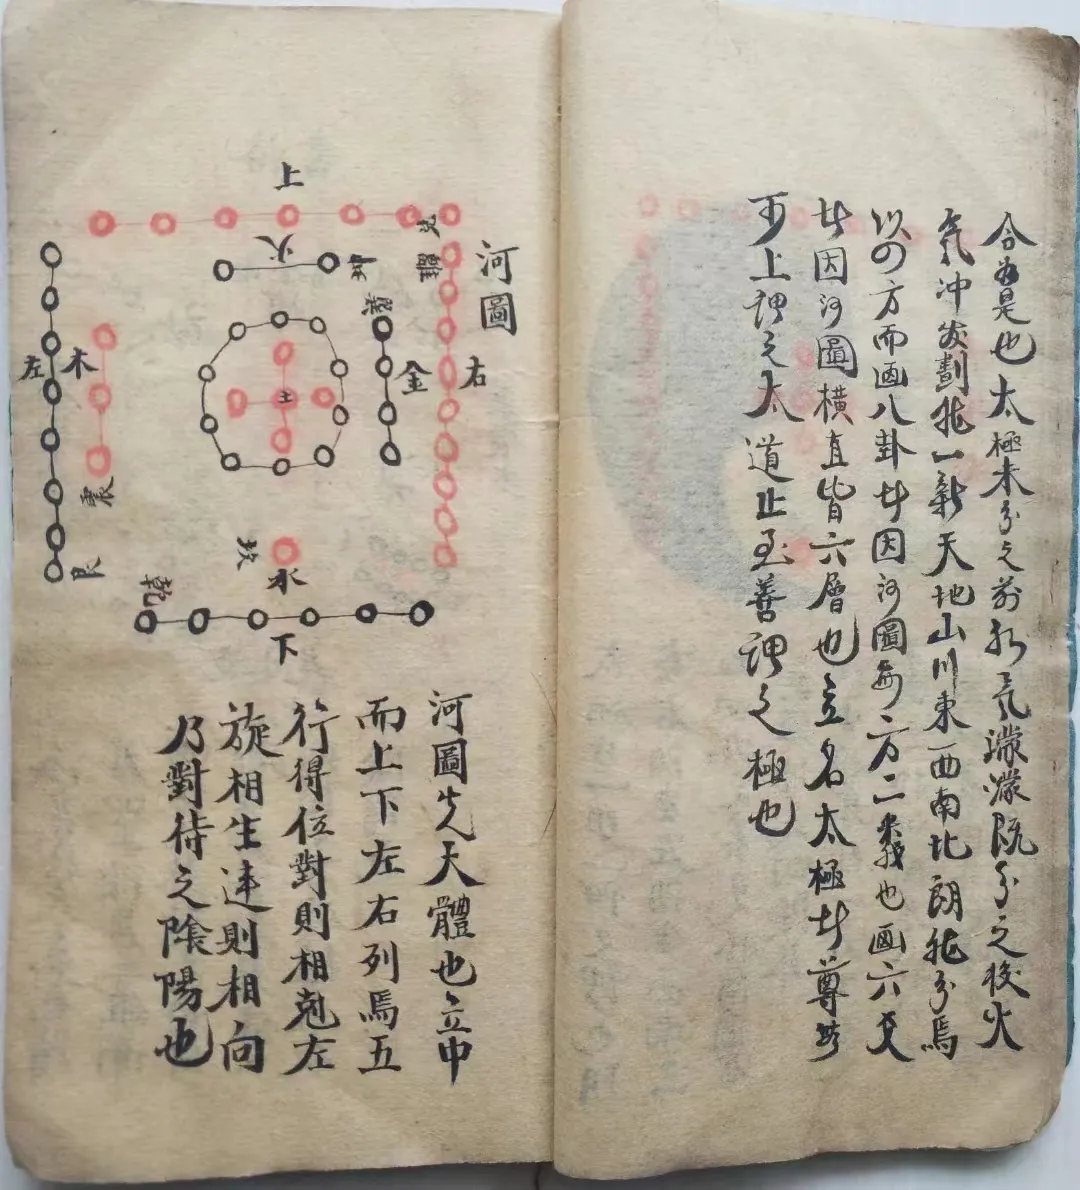 合為是也太極未分之前水氣濛濛既分之後火
氣冲發劃然一新天地山川東西南北朗然分焉
以四方而画八卦者因河圖每方二義也画六爻
者因河圖橫直皆六層也立名太極者尊無
可上謂之太道止至善謂之極也
河圖
上
火
坤
離
右
金
土
木
左
震
艮
坎
水
乾
下
河圖先大體也立中
而上下左右列焉五
行得位對則相剋左
旋相生則相向
乃對待之陰陽也